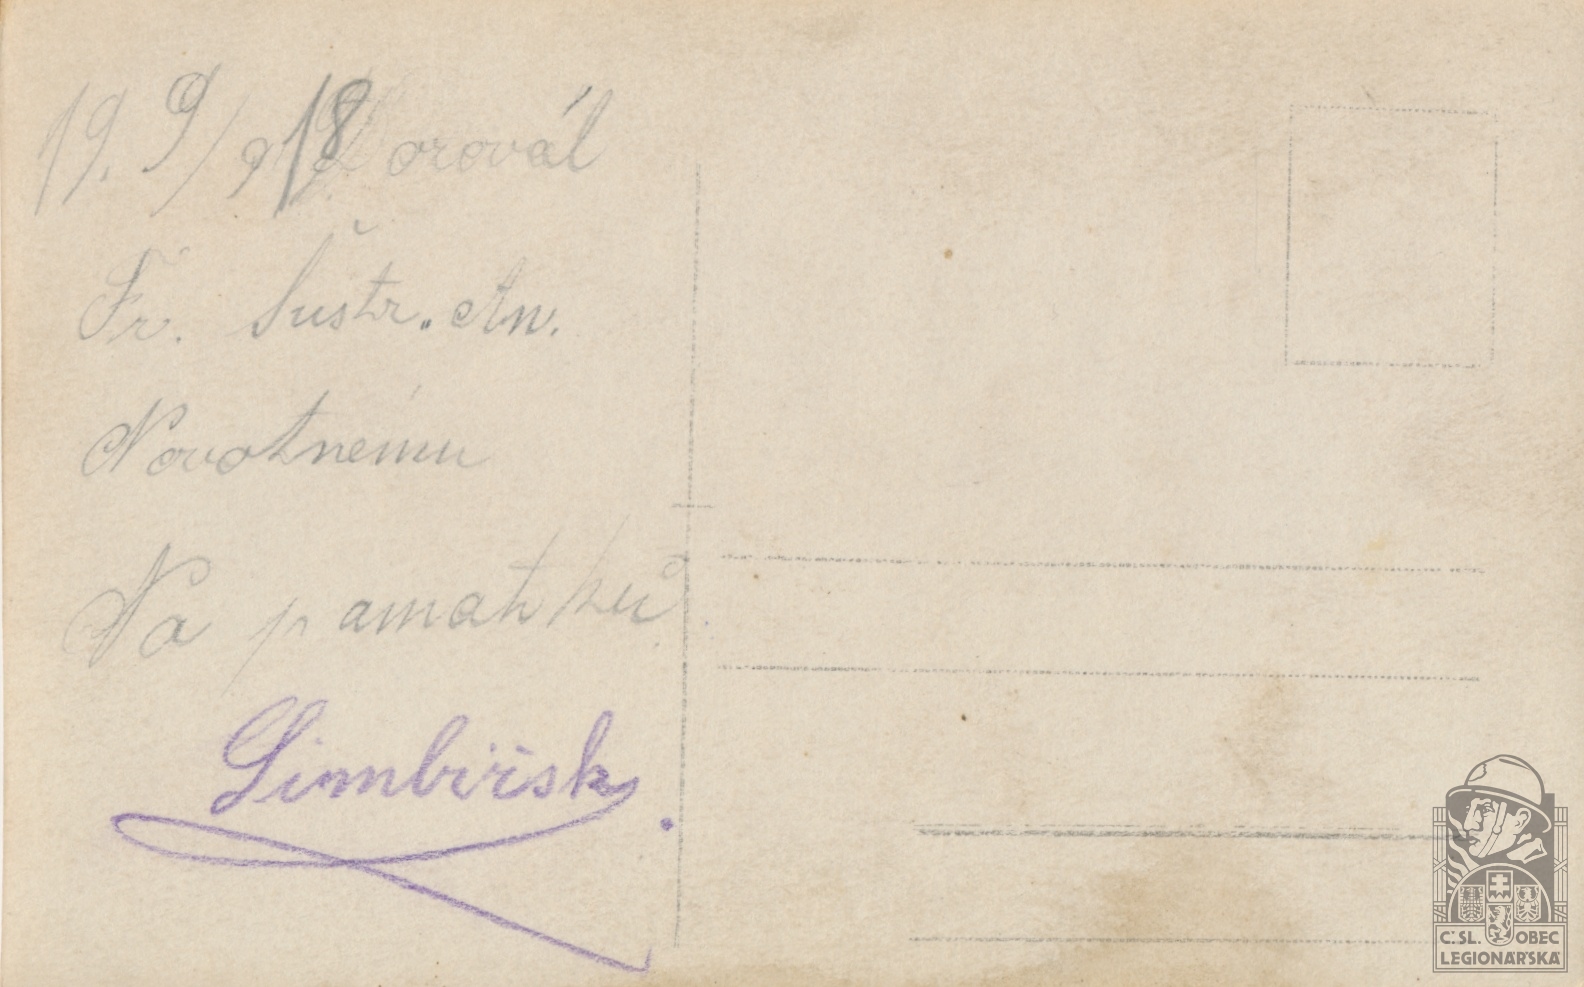 19. 9/18 Dorovál
Fr. Šustr. An.
Novotnému
Na pamatků
Simbiřsk.
Č.SL. OBEC
LEGIONÁŘSKÁ